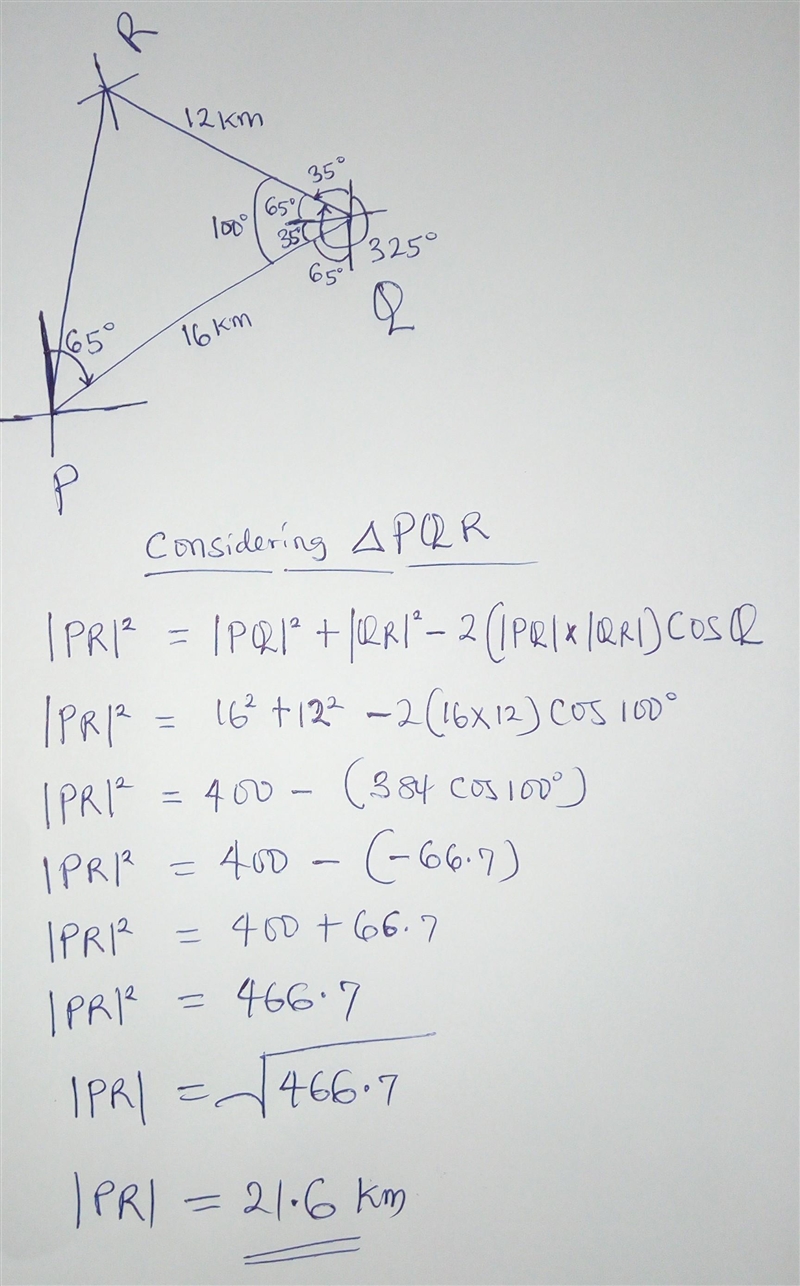 R
12km
35°
65°
100°
35°
325°
65°
Q
16km
65°
P
Considering △PQR
|PR|² = |PQ|² + |QR|² - 2(|PQ| x |QR|) Cos Q
|PR|² = 16² + 12² - 2(16x12) Cos 100°
|PR|² = 400 - (384 cos 100°)
|PR|² = 400 - (-66.7)
|PR|² = 400 + 66.7
|PR|² = 466.7
|PR| = √466.7
|PR| = 21.6 km